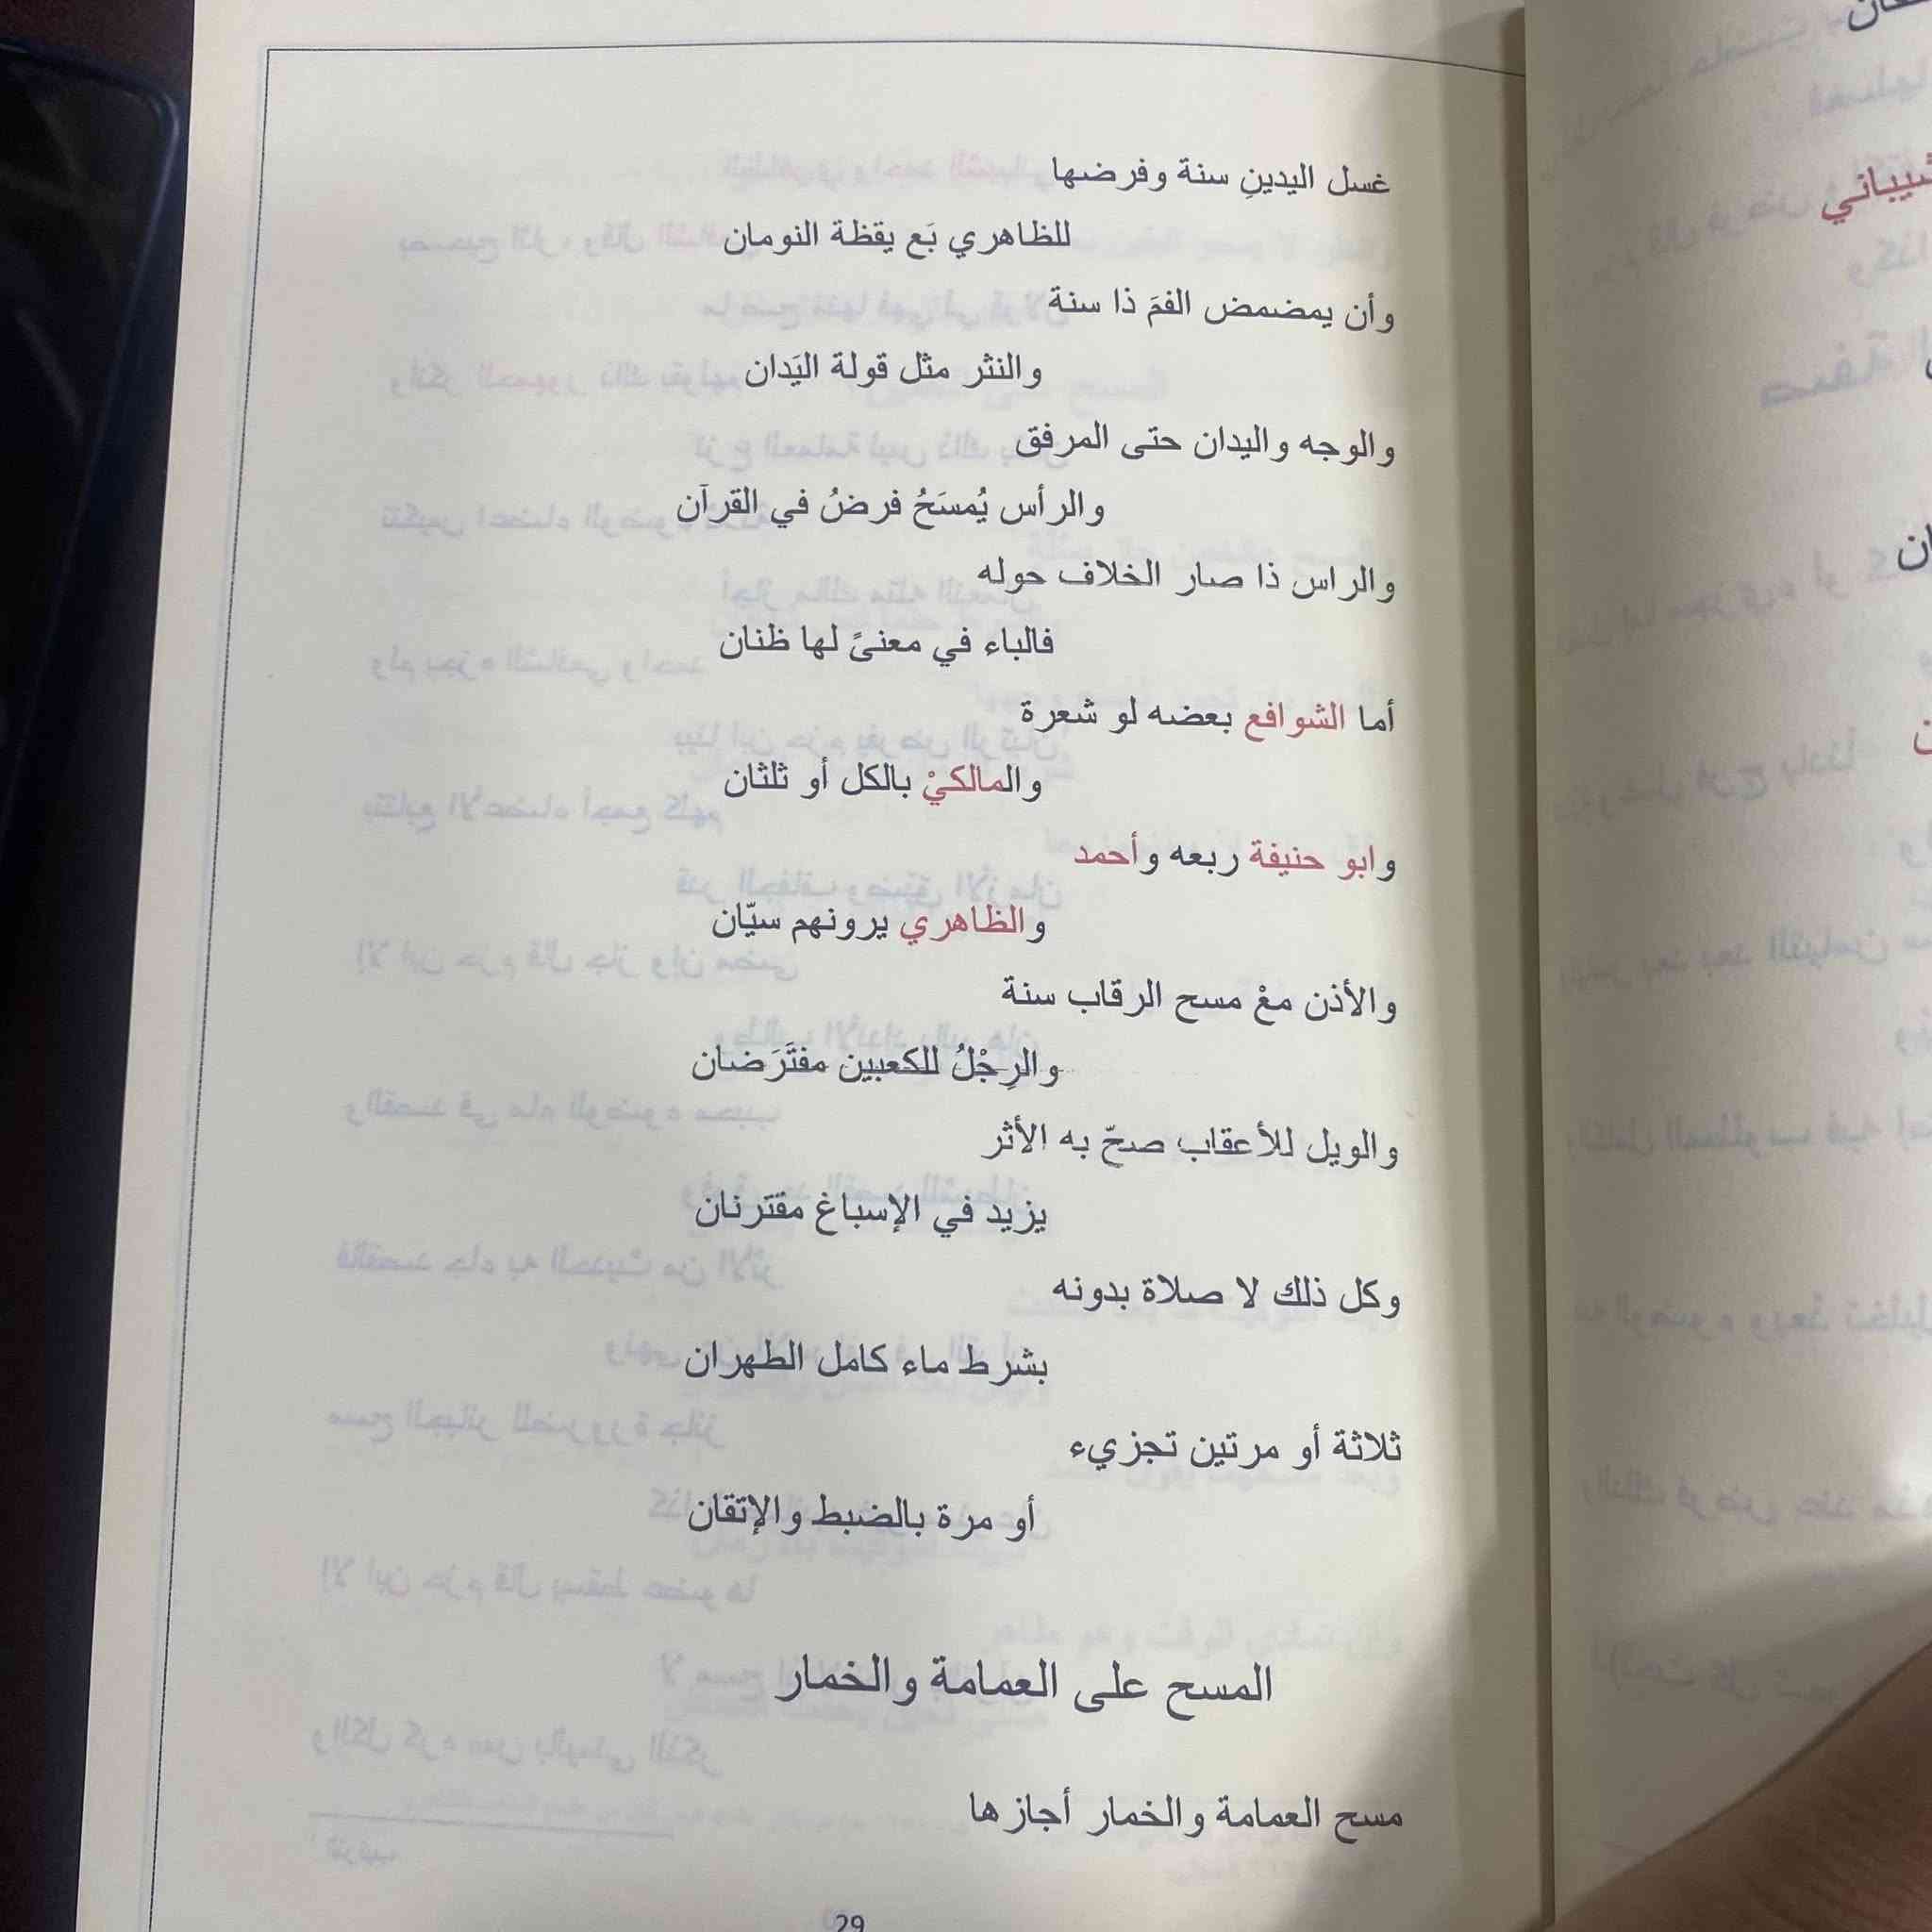 غسل اليدينِ سنة وفرضها
للظاهري بَع يقظة النومان
وأن يمضمض الفمَ ذا سنة
والنثر مثل قولة اليَدان
والوجه واليدان حتى المرفق
والرأس يُمسَحُ فرضُ في القرآن
والراس ذا صار الخلاف حوله
فالباء في معنىً لها ظنان
أما الشوافع بعضه لو شعرة
والمالكيْ بالكل أو ثلثان
وابو حنيفة ربعه وأحمد
والظاهري يرونهم سيّان
والأذن معْ مسح الرقاب سنة
والرِجْلُ للكعبين مفتَرَضان
والويل للأعقاب صحّ به الأثر
يزيد في الإسباغ مقترنان
وكل ذلك لا صلاة بدونه
بشرط ماء كامل الطهران
ثلاثة أو مرتين تجزيء
أو مرة بالضبط والإتقان
المسح على العمامة والخمار
مسح العمامة والخمار أجازها
29